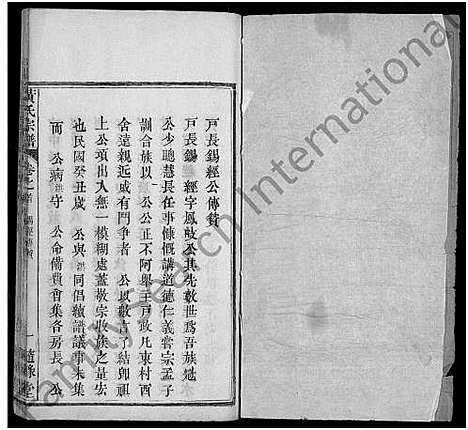 戶長錫經公傳贊
戶長錫 經字鳳敬公其先歿世爲吾族
公少聰慧長任事慷慨講道德仁義嘗宗孟子
訓合族以 公公正不阿舉主戶政凡東村西
舍遠親近戚有鬥爭者 公以數言了結卽祖
上公項出入無一模糊處蓋敬宗收族之是宏
也民國癸丑歲 公與 同倡續譜議事未集
而 公病 守 公命備費會集各房長 公
黃氏宗譜
卷之首
一
堂
FamilySearch International